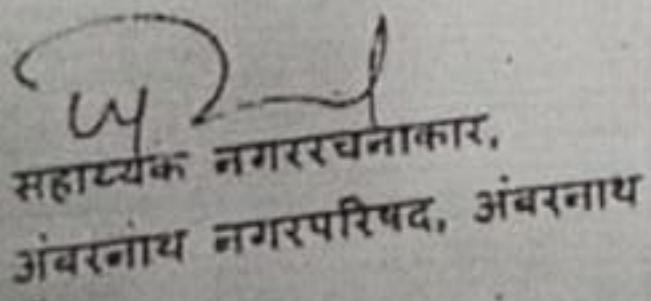 सहाय्यक नगररचनाकार,
अंबरनाथ नगरपरिषद, अंबरनाथ